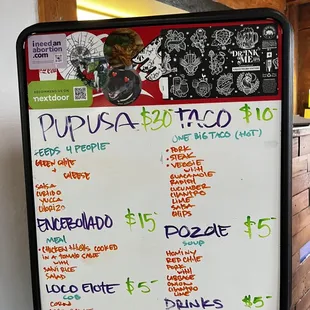 ineedan
abortion.
com
nextdoor
DRINK
ME
PUPUSA $20
FEEDS 4 PEOPLE
GREEN CHILE
+
CHEESE
SALSA
CURTIDO
YUCCA
CHORIZO
TACO $10
ONE BIG TACO (HOT)
PORK
STEAK
VEGGIE
WITH
GUACAMOLE
RADISH
CUCUMBER
CILANTRO
LIME
SALSA
CHIPS
ENCEBOLLADO $15
MEAL
CHICKEN THIGHS COOKED
IN A TOMATO
WITH
RICE
SALAD
POZOLE $5
SOUP
HOMINY
RED CHILE
PORK
WITH
CABBAGE
ONION
CILANTRO
LIME
LOCO ELOTE $5
COB
CORN
DRINKS $5